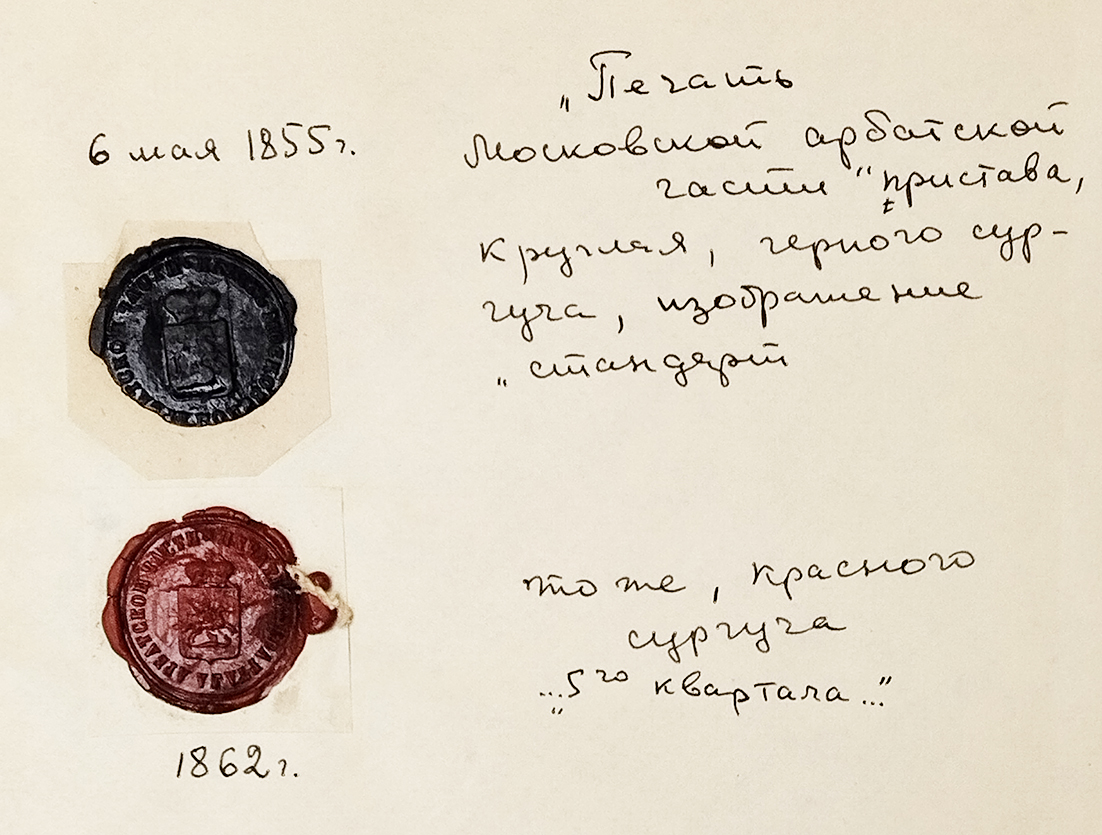 6 мая 1855 г.
„Печать
Московской арбатской
части“ пристава,
круглая, черного сур-
гуча, изображение
„стандарт
то же, красного
сургуча
„...5го квартала...“
1862 г.
АРБАТСКОЙ ЧАСТИ